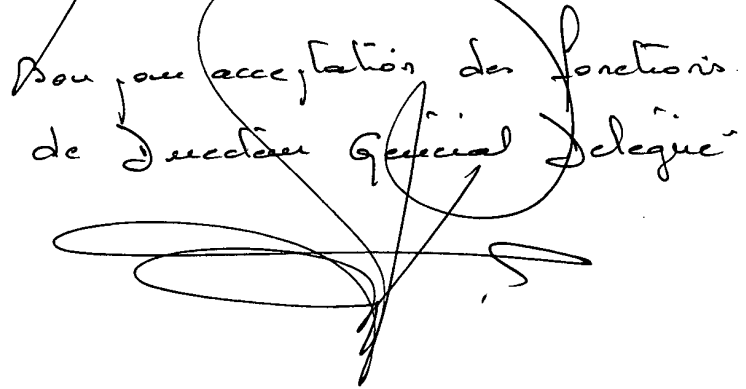 Bon pour acceptation des fonctions
de Directeur Général Délégué